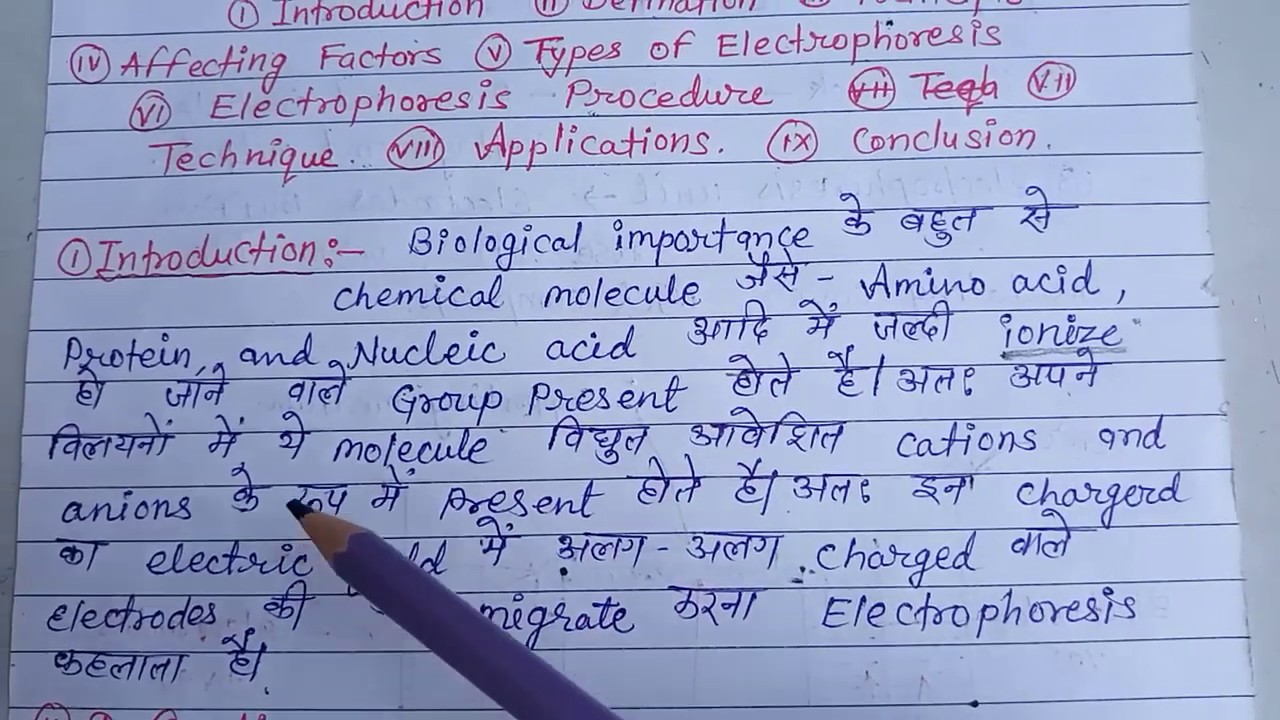 ① Introduction ⑪
Ⓘⱽ Affecting Factors Ⓥ Types of Electrophoresis
Ⓥⁱ Electrophoresis Procedure VII Teqh VII
Technique. VIII Applications. IX Conclusion.
① Introduction :- Biological importance के बहुत से
chemical molecule जैसे - Amino acid,
Protein, and Nucleic acid आदि में जल्दी ionize
हो जाने वाले Group Present होते है। अतः अपने
विलयनों में ये molecule विद्युत आवेशित cations and
anions के रूप में present होते है। अतः इन chargerd
का electric में अलग - अलग charged वाले
electrodes की migrate करना Electrophoresis
कहलाता है।